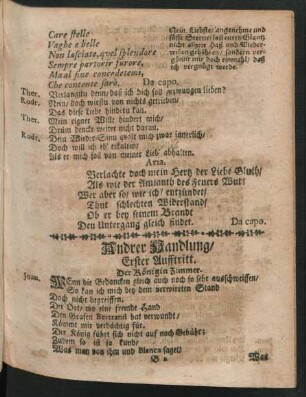 Care stelle
Vaghe e belle
Non lasciate, quel splendore
Sempre partorir furore,
Ma al fine concedetemi,
Che contento sarò. Da capo.
Mein Liebster angenehme und
süsse Sterne laßt euren Glantz
nicht allzeit Haß und
gebähren / sondern ver-
gönt mir doch einmahl / daß
ich vergnügt werde.
Ther. Verlangstu denn / daß ich dich soll gezwungen lieben?
Rodr. Nein / doch wirstu von nichts getrieben /
Das diese Liebe hindern kan.
Ther. Mein eigner Wille hindert mich /
Drüm dencke weiter nicht daran.
Rodr. Dein Sinn quält mich zwar jämerlich /
Doch will ich eh' erkalten /
Als er mich soll von meiner Lieb' abhalten.
Aria.
Verlachte doch mein Hertz der Liebe Gluth /
Als wie der Amianth des Feuers Wut /
Wer aber so / wie ich / entzündet /
Thut schlechten Widerstand /
Ob er bey seinem Brandt
Den Untergang gleich findet. Da capo.
Andrer Handlung /
Erster Aufftritt.
Der Königin Zimmer.
Juan. Wenn die Gedancken gleich auch noch so sehr ausschweiffen /
So kan ich mich bey dem verwirrten Stand
Doch nicht begreiffen:
Der Ort / wo eine fremde Hand
Den Grafen Bertrand hat verwundt /
Kömmt mir verdächtig für.
Der König führt sich nicht auf nach Gebühr;
Zudem so ist ja kund /
Was man von ihm und Blancen saget /
Was